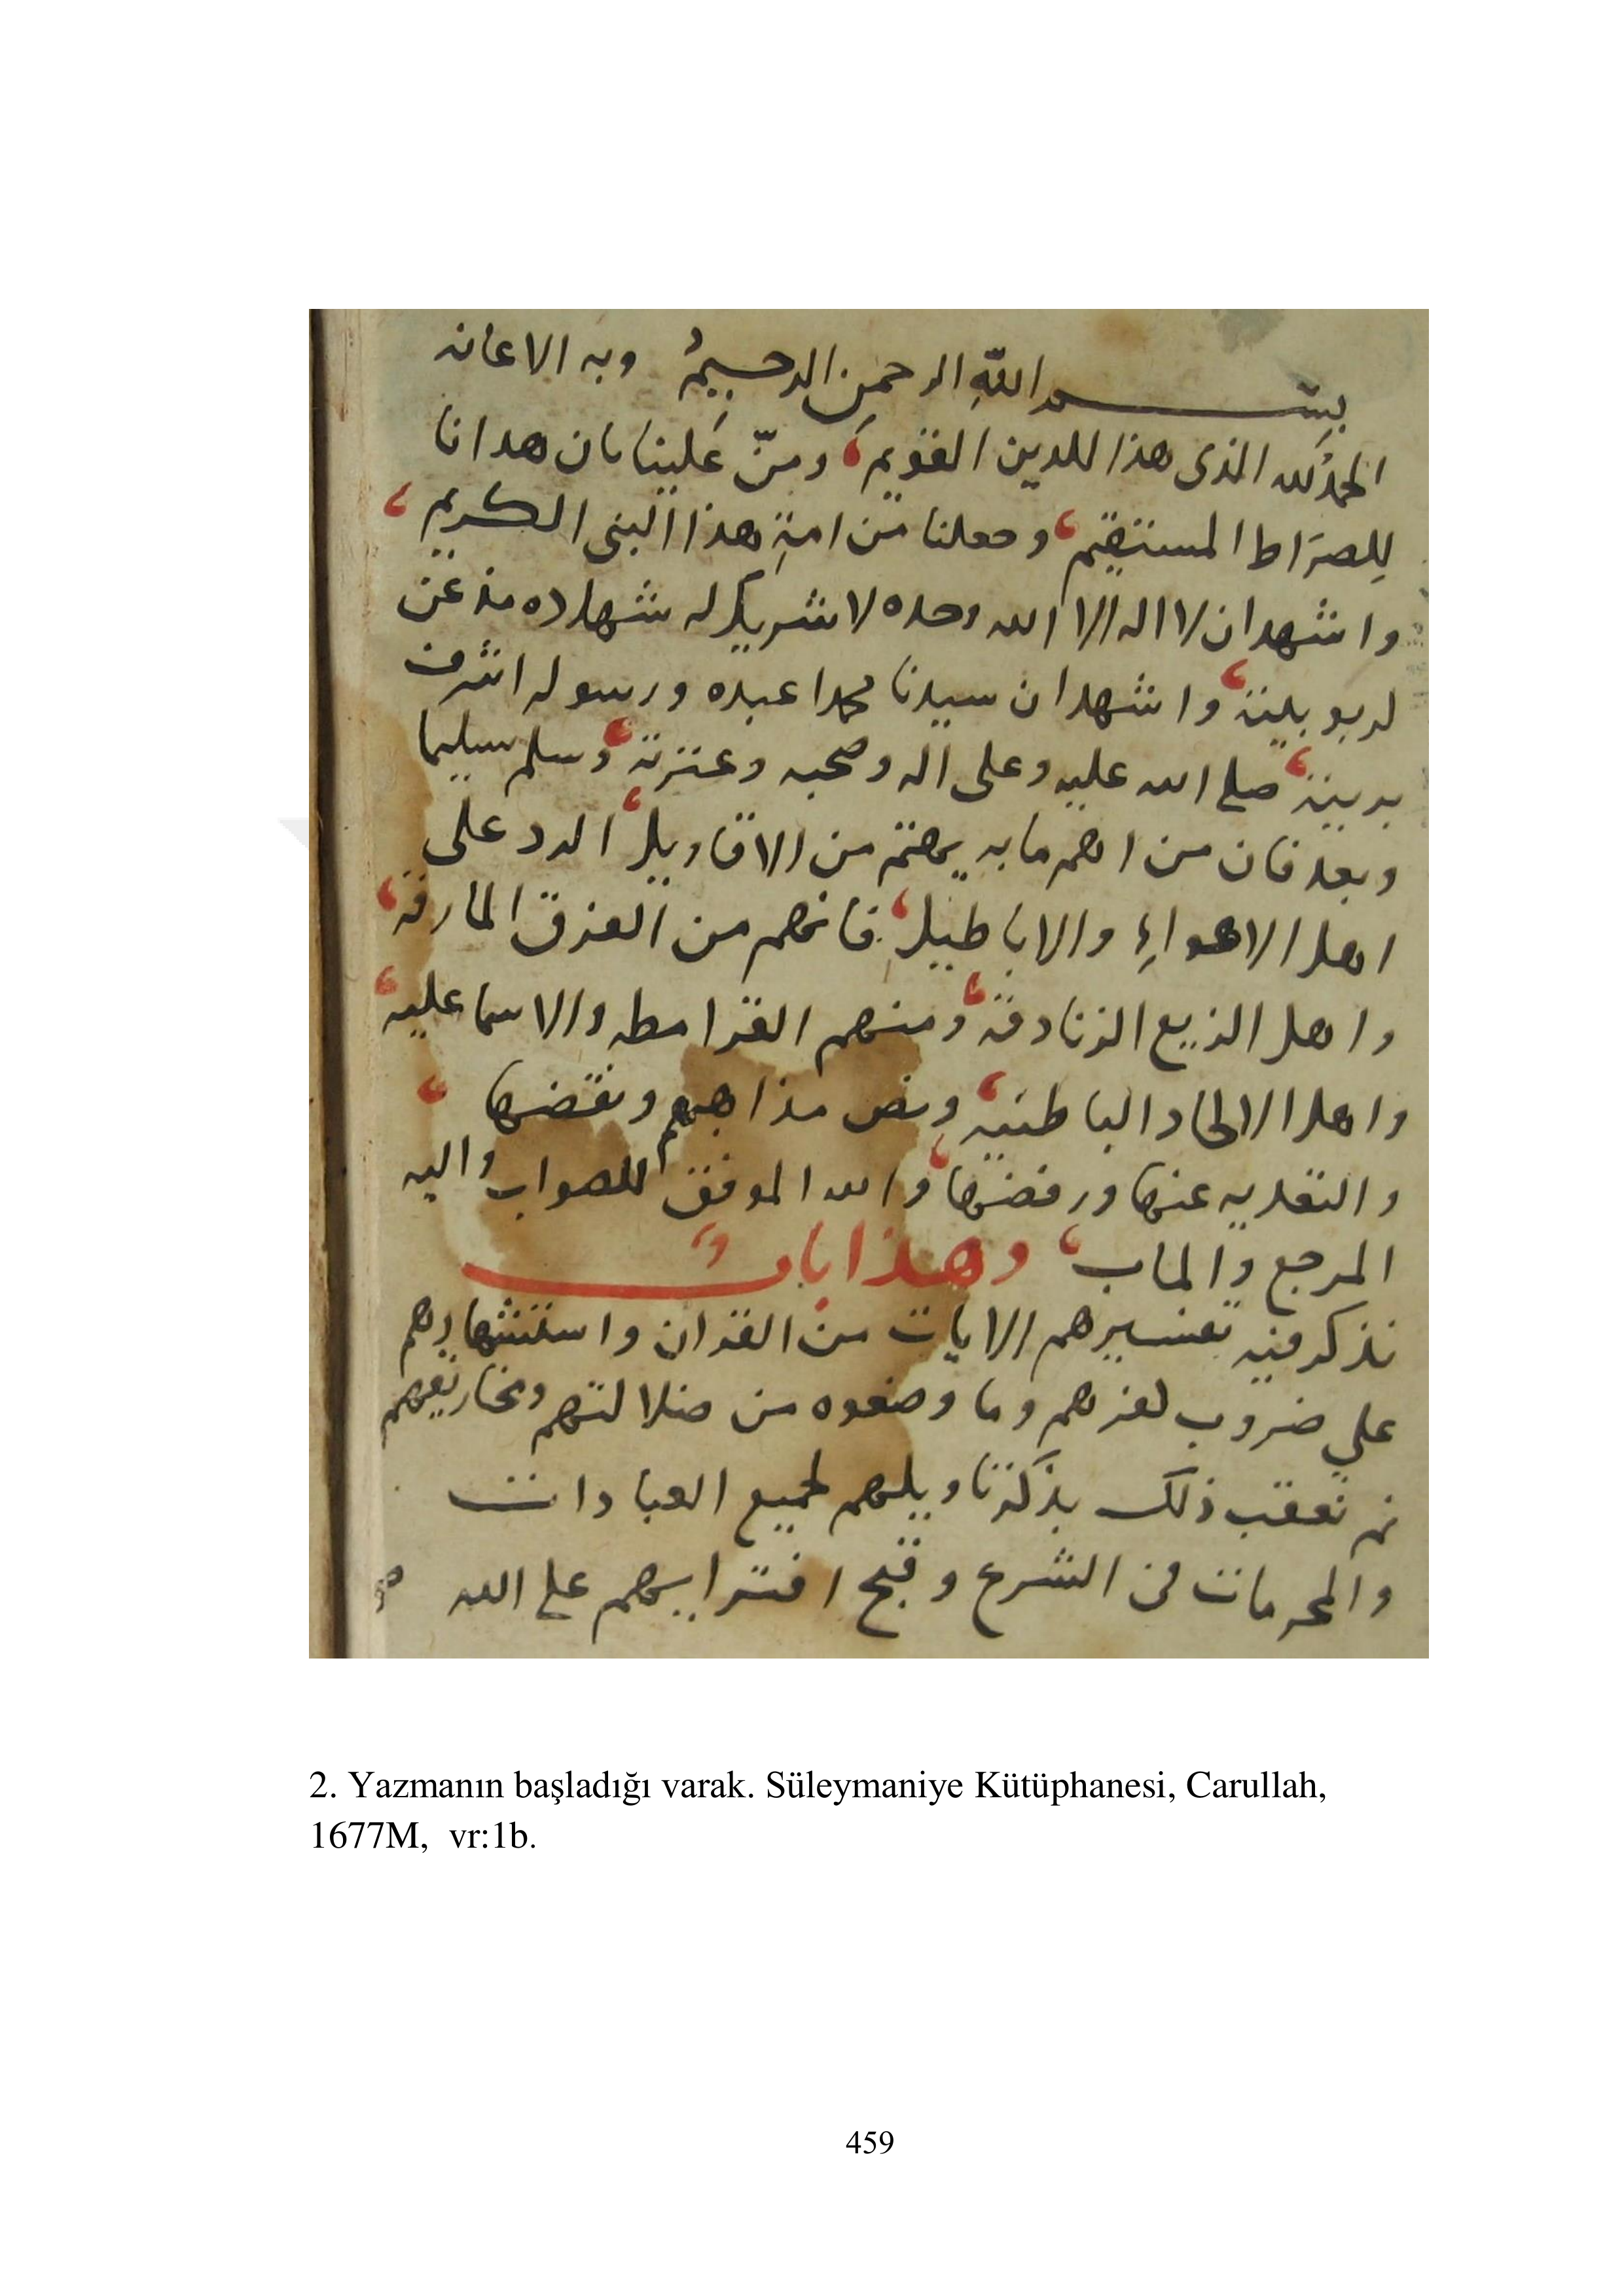 بسم الله الرحمن الرحيم وبه الاعانه
الحمد لله الذى هذا للدين القويم، ومنّ علينا بان هدانا
للصراط المستقيم، وجعلنا من امة هذا النبى الكريم،
واشهد ان لا اله الا الله وحده لا شريك له شهاده مذعن
لربوبيته، واشهد ان سيدنا محمدا عبده ورسوله اشرف
بريته، صلى الله عليه وعلى اله وصحبه وعترته، وسلم تسليما
وبعد فان من اهم ما به يهتم من الاقاويل، الرد على
اهل الاهواء والاباطيل، فانهم من الفرق المارقة،
واهل الزيع الزنادقة، ومنهم القرامطه والاسماعليه،
واهل الالحاد الباطنيه، ونص مذاهبهم ونقضها،
عنها ورفضها، والله الموفق للصواب واليه
المرجع والماب، وهذا باب
نذكر فيه تفسيرهم الايات من القران واستشهادهم
على ضروب كفرهم وما وضعوه من ضلالتهم ومخاريقهم
ثم نعقب ذلك بذكر تاويلهم لجميع العبادات
والمحرمات فى الشرع وقبح افترايهم على الله
2. Yazmanın başladığı varak. Süleymaniye Kütüphanesi, Carullah,
1677M, vr:1b.
459